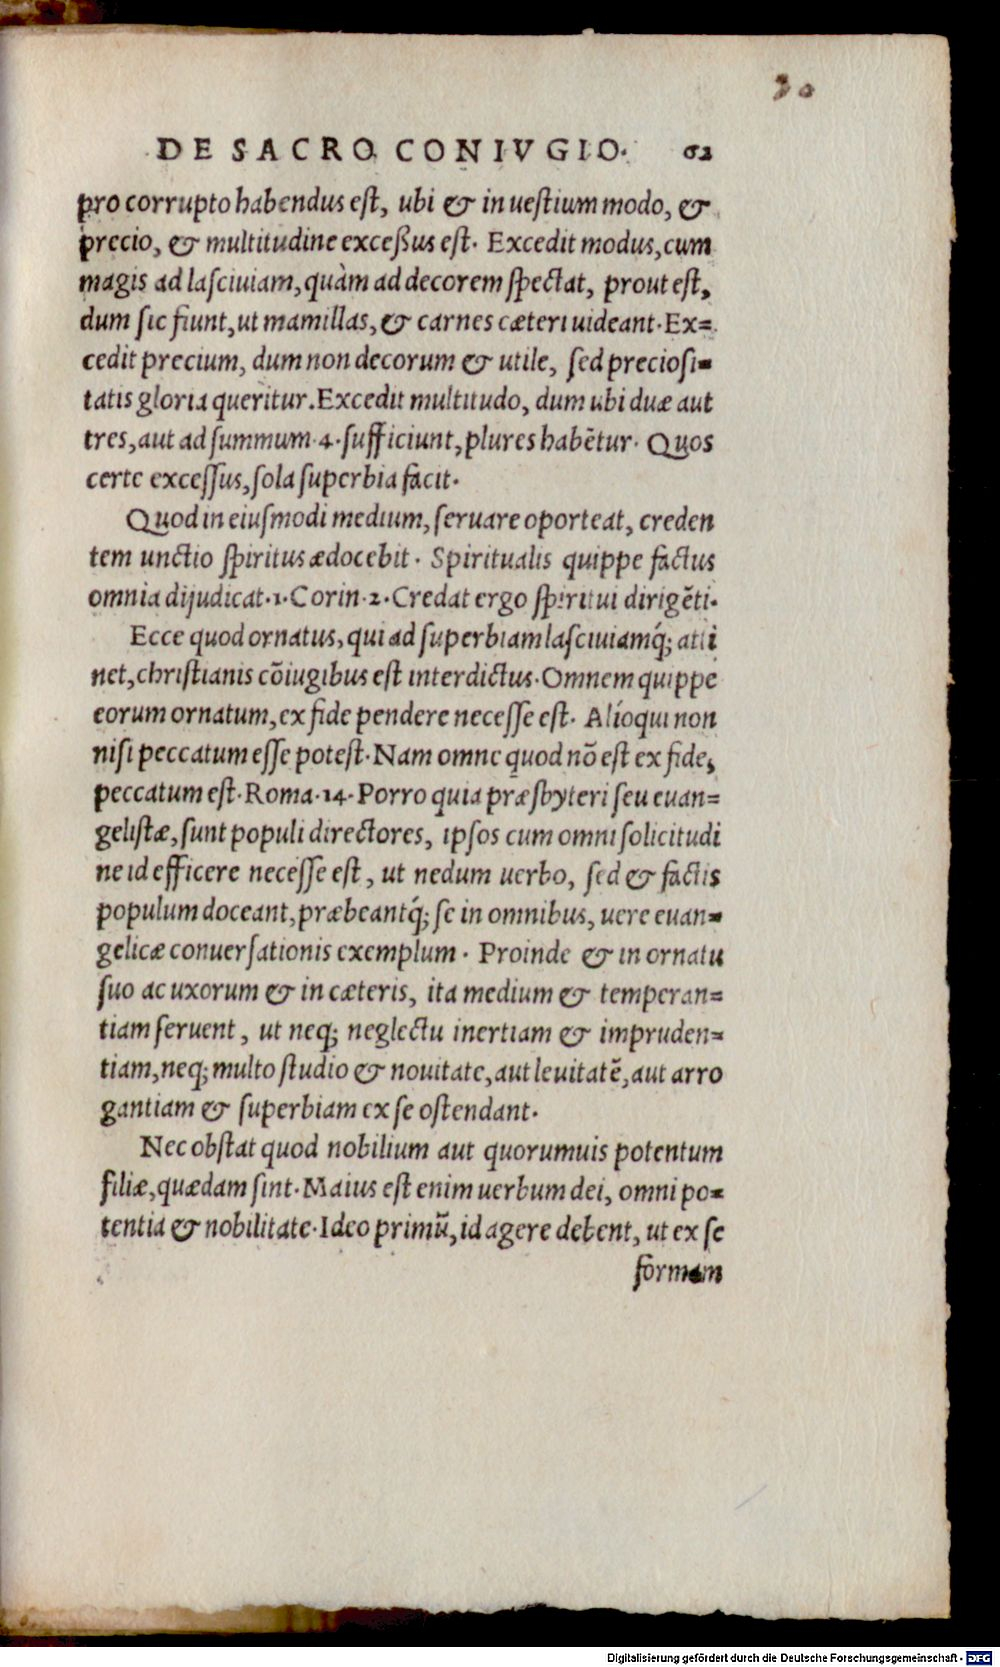 30
DE SACRO CONIVGIO. 62
pro corrupto habendus est, ubi & in uestium modo, &
precio, & multitudine exceßus est. Excedit modus, cum
magis ad lasciuiam, quàm ad decorem spectat, prout est,
dum sic fiunt, ut mamillas, & carnes cæteri uideant. Ex=
cedit precium, dum non decorum & utile, sed preciosi=
tatis gloria queritur. Excedit multitudo, dum ubi duæ aut
tres, aut ad summum .4. sufficiunt, plures habẽtur. Quos
certe excessus, sola superbia facit.
Quod in eiusmodi medium, seruare oporteat, creden
tem unctio spiritus ædocebit. Spiritualis quippe factus
omnia dijudicat .1. Corin .2. Credat ergo spiritui dirigẽti.
Ecce quod ornatus, qui ad superbiam lasciuiamq́; atti
net, christianis cõiugibus est interdictus. Omnem quippe
eorum ornatum, ex fide pendere necesse est. Alíoqui non
nisi peccatum esse potest. Nam omne quod nõ est ex fide,
peccatum est. Roma .14. Porro quia præsbyteri seu euan=
gelistæ, sunt populi directores, ipsos cum omni solicitudi
ne id efficere necesse est, ut nedum uerbo, sed & factis
populum doceant, præbeantq́; se in omnibus, uere euan=
gelicæ conuersationis exemplum. Proinde & in ornatu
suo ac uxorum & in cæteris, ita medium & temperan=
tiam seruent, ut neq; neglectu inertiam & impruden=
tiam, neq; multo studio & nouitate, aut leuitatẽ, aut arro
gantiam & superbiam ex se ostendant.
Nec obstat quod nobilium aut quorumuis potentum
filiæ, quædam sint. Maius est enim uerbum dei, omni po=
tentia & nobilitate. Ideo primũ, id agere debent, ut ex se
formam
Digitalisierung gefördert durch die Deutsche Forschungsgemeinschaft - DFG